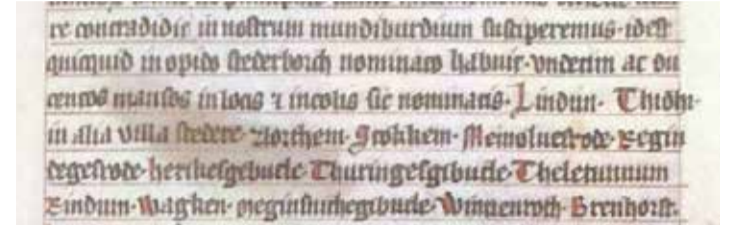 re contradidit in nostrum mundiburdium susciperemus idest
quicquid in opido stederborch nominato habuit undecim ac du
centos mansos in locis ⁊ incolis sic nominatis. Lindun. Thidhi
in alia villa stedere. Northem. Stokhem. Meinolvesrode. Regin
degesrode. herikesgebutle. Thuringesgibutle. Theletunnum
Lindum. Wagken. Winnenroth. Brenhorst.